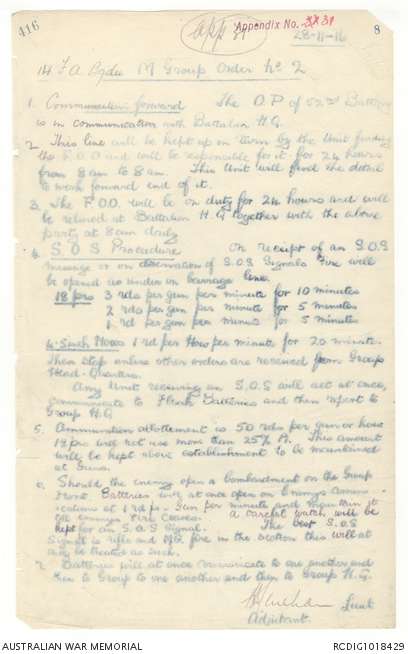 416
app 31
Appendix No. 31
28-11-16
8
14 F A Bgde M Group Order No 2
1. Communication forward The O.P of 52nd Battery
is in communication with Battalion H.Q.
2. This line will be kept up in turn by the Unit finding
the F.O.O and will be responsible for it for 24 hours
from 8am to 8am. This Unit will find the detail
to work forward end of it.
3. The F.O.O. will be on duty for 24 hours and will
be relieved at Battalion H.Q together with the above
party at 8am daily
4. S.O.S Procedure On receipt of an S.O.S
message or on observation of S.O.S Signals fire will
be opened as under on barrage line.
18 prs 3 rds per gun per minute for 10 minutes
2 rds per gun per minute for 5 minutes
1 rd per gun per minute for 5 minutes
4.5 inch Hows 1 rd per How per minute for 20 minutes.
Then stop unless other orders are received from Group
Head-Quarters.
Any Unit receiving an S.O.S will act at once,
communicate to Flank Batteries and then report to
Group H.Q
5. Ammunition allottment is 50 rds per gun or how
18 prs will not use more than 25% A. This amount
will be kept above establishment to be maintained
at Guns.
6. Should the enemy open a bombardment on the Group
Front. Batteries will at once open on Enemys
1 rd per Gun per minute and maintain it
till enemys Fire Ceases. A careful watch will be
kept for an S.O.S Signal. The best S.O.S
Signal is rifle and M.G fire in the section this will at
any be treated as such.
7. Batteries will at once communicate to one another and
then to Group to one another and then to Group H.Q.
Lieut
Adjutant.
AUSTRALIAN WAR MEMORIAL
RCDIG1018429